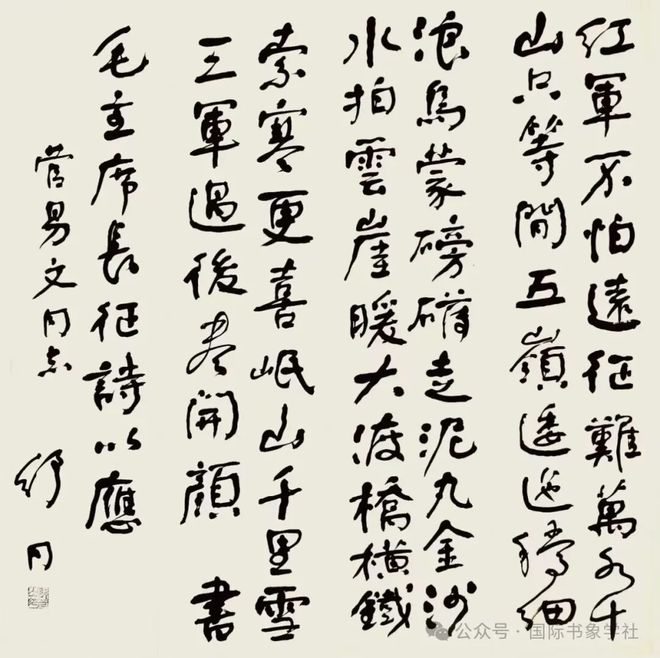 紅軍不怕遠征難萬水千
山只等閒五嶺逶迤騰細
浪烏蒙磅礴走泥丸金沙
水拍雲崖暖大渡橋橫鐵
索寒更喜岷山千里雪
三軍過後尽開顏 書
毛主席長征詩以應
管易文同志
舒同
公众号·国际书象学社